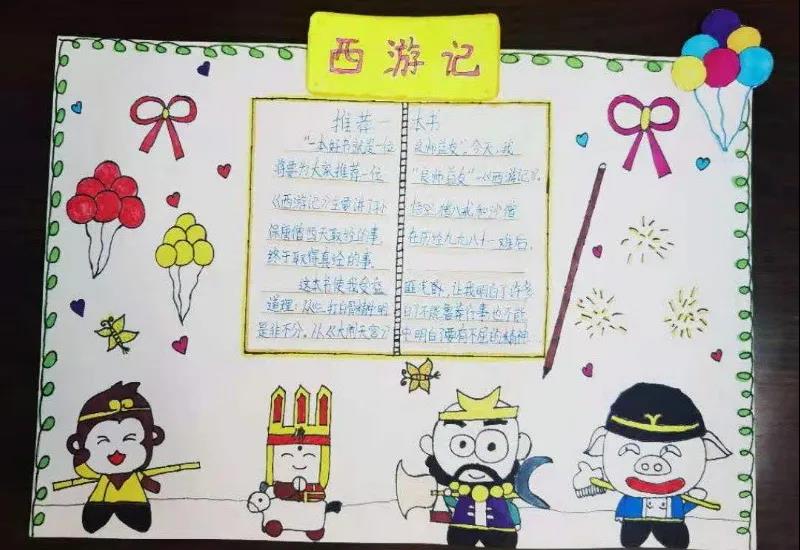 西游记
推荐一本书
“一本好书就是一位良师益友”，今天，我
将要为大家推荐一位“良师益友”-《西游记》.
《西游记》主要讲了孙悟空、猪八戒和沙僧
保唐僧西天取经的事，在历经九九八十一难后，
终于取得真经的事.
这本书使我受益匪浅，让我明白了许多
道理：从《三打白骨精》中明白了不能鲁莽行事也不能
是非不分，从《大闹天宫》中明白了要有不屈的精神